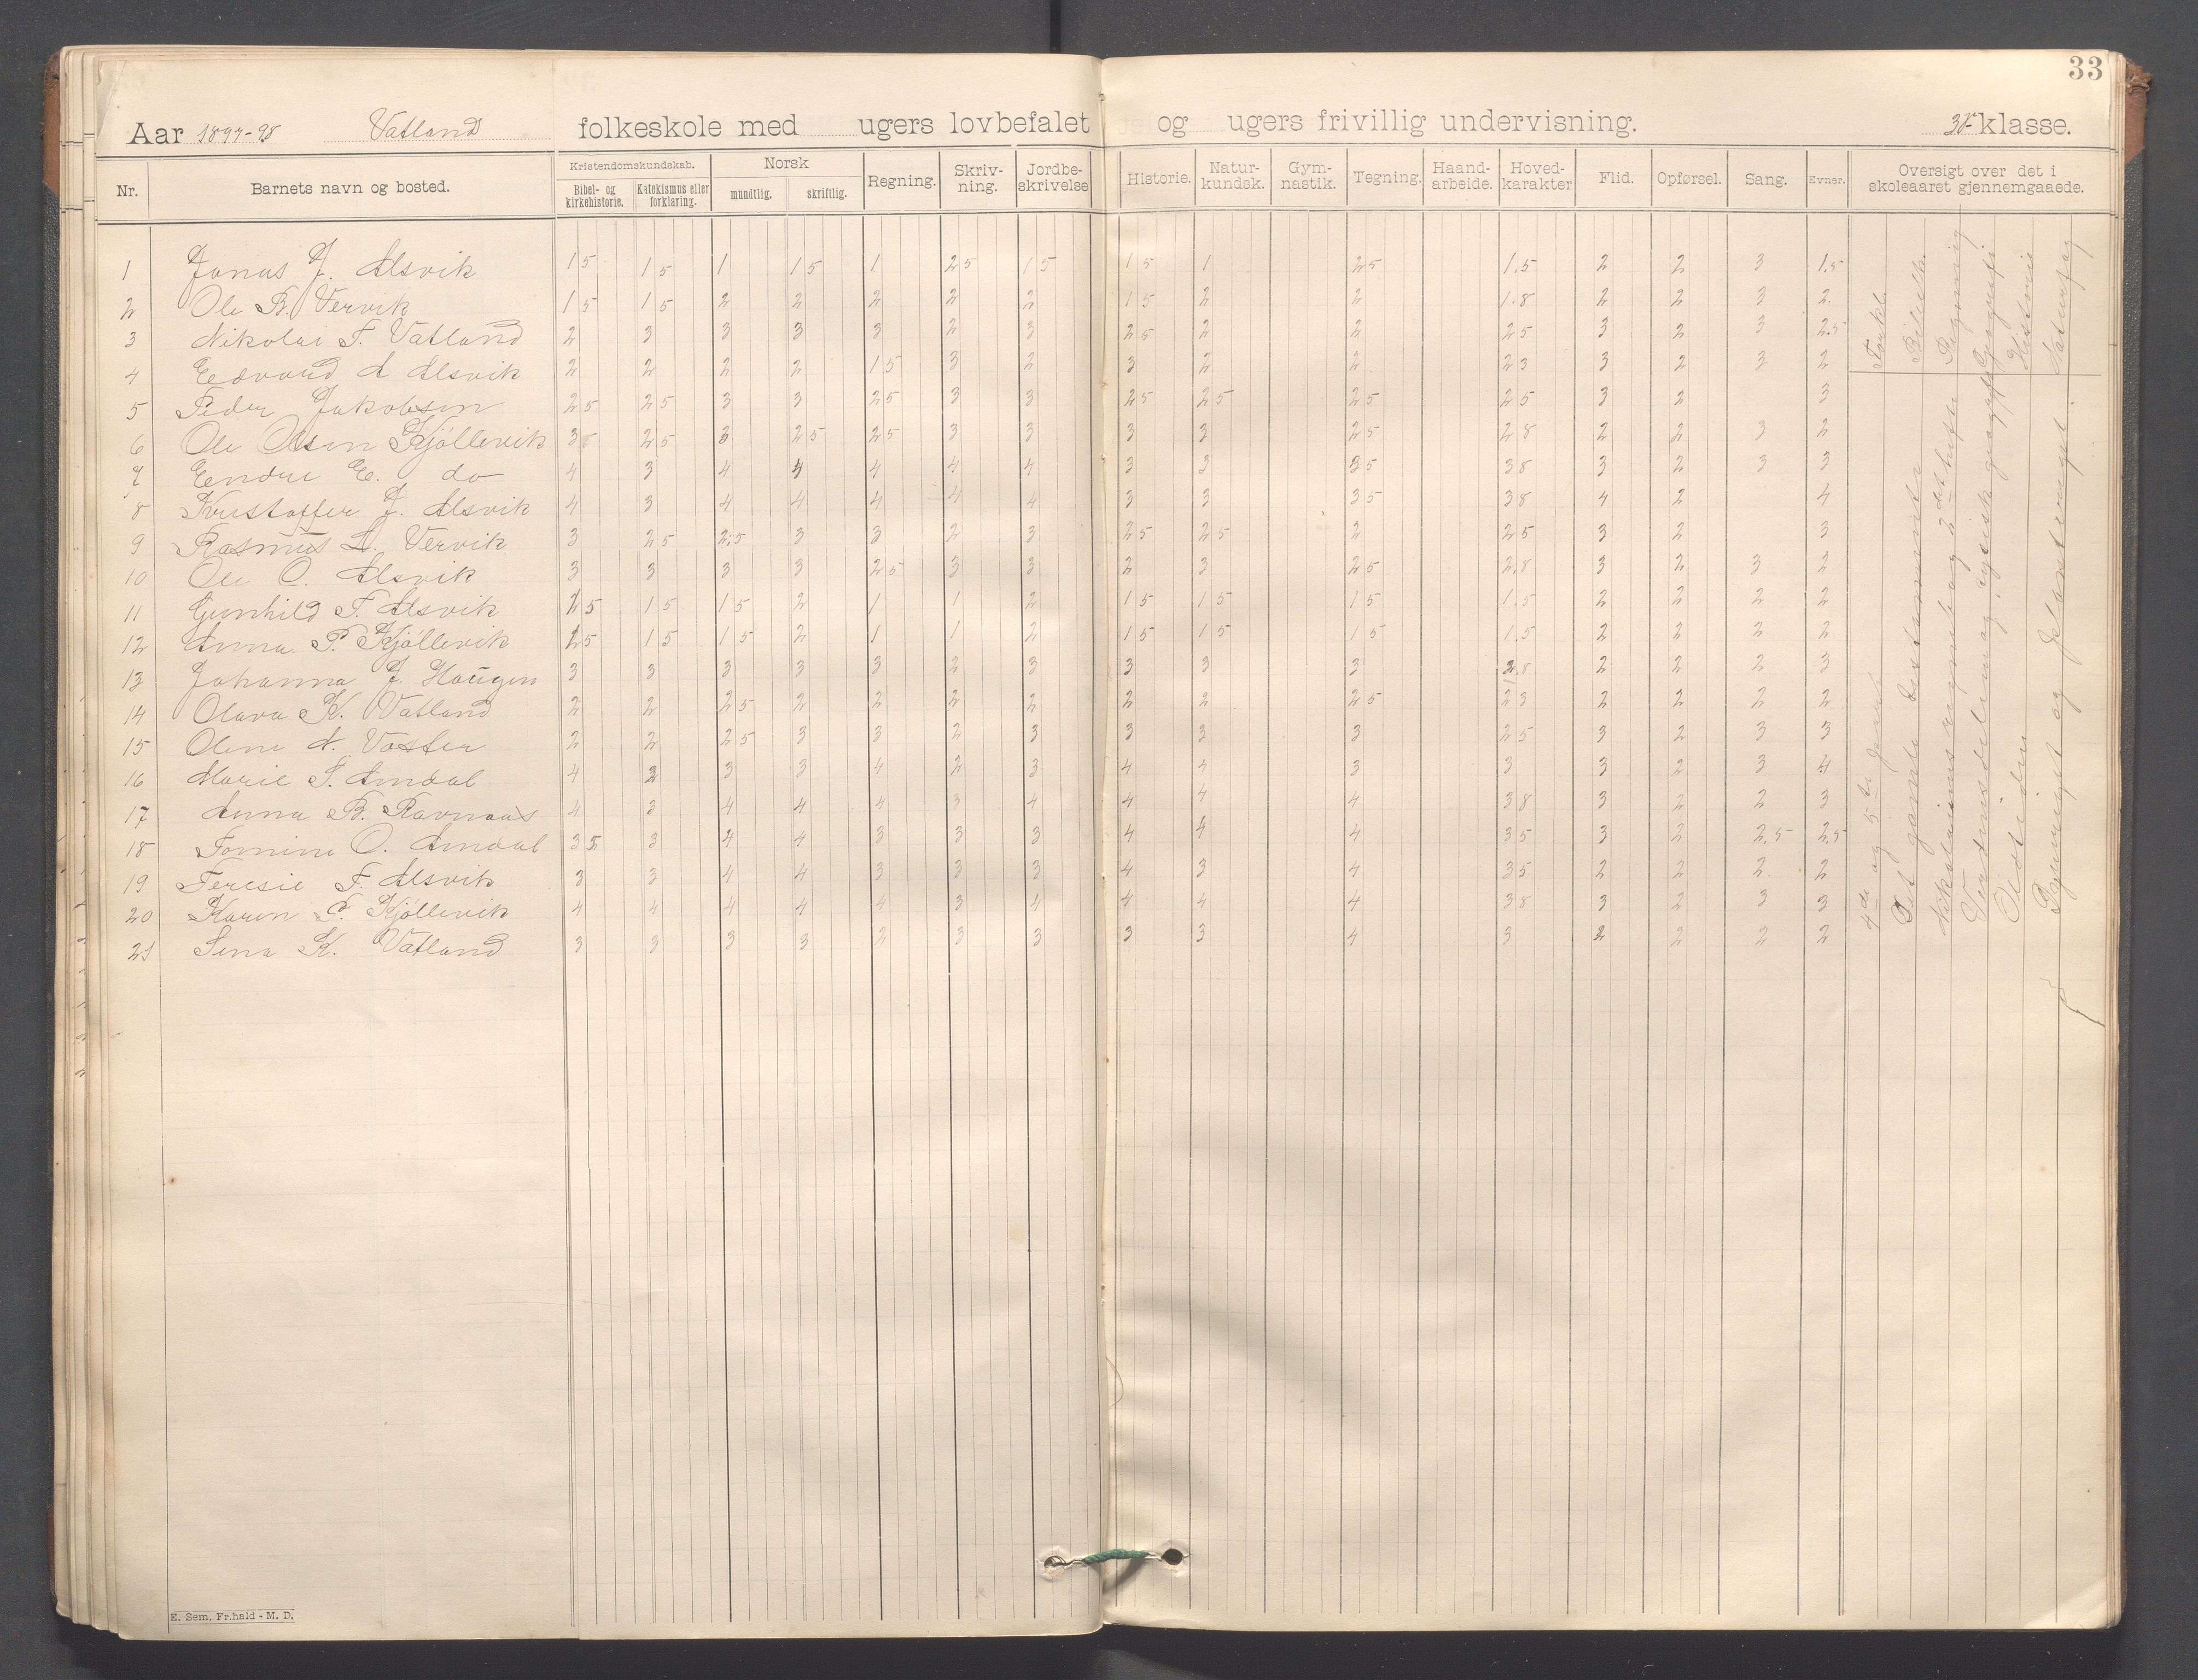 33
Aar 1897-98 Vatland folkeskole med ugers lovbefalet og ugers frivillig undervisning. 3die klasse.
Nr. Barnets navn og bosted. Kristendomskundskab. Bibel- og kirkehistorie. Katekismus eller forklaring. Norsk mundtlig. skriftlig. Regning. Skriv-ning. Jordbe-skrivelse Historie. Natur-kundsk. Gym-nastik. Tegning. Haand-arbeide. Hoved-karakter Flid. Opførsel. Sang. Evner. Oversigt over det i skoleaaret gjennemgaaede.
1 Jonas J. Alsvik 15 15 1 15 1 25 15 15 1 25 1.5 2 2 3 1.5
2 Ole B. Vervik 15 15 2 2 2 2 2 15 2 2 1.8 2 2 3 2.
3 Nikolai T. Vatland 2 3 3 3 3 2 3 25 2 2 25 3 2 3 2.5
4 Edvard A Alsvik 2 2 2 2 15 3 2 3 2 2 23 3 2 3 2
5 Peder Jakobsen 25 25 3 3 25 3 3 25 25 25 25 3 2 3
6 Ole Olsen Kjöllevik 3 25 3 25 25 3 3 3 3 25 28 2 2 3 2
7 Endre E. do 4 3 4 4 4 4 4 3 3 35 38 3 2 3 3
8 Kristoffer J. Alsvik 4 3 4 4 4 4 4 3 3 35 38 4 2 4
9 Rasmus L. Vervik 3 25 2,5 3 3 2 3 25 25 2 25 3 2 3
10 Ole O. Alsvik 3 3 3 3 25 3 3 2 3 25 2.8 3 2 3 2
11 Gunhild T. Alsvik 15 15 15 2 1 1 2 15 15 15 1.5 2 2 2 2
12 Anna P. Kjöllevik 15 15 15 2 1 1 2 15 15 15 1.5 2 2 2 2
13 Johanna J. Haugen 3 3 3 3 3 2 3 3 3 3 2.8 2 2 2 3
14 Olava K. Vatland 2 2 25 2 2 2 2 2 2 25 23 2 2 2 2
15 Oline A. Vaster 2 2 25 3 3 2 3 3 3 3 25 3 2 3 3
16 Marie T. Amdal 4 2 3 3 4 2 3 4 4 3 3 3 2 3 4
17 Anna B. Ravnaas 4 3 4 4 4 3 4 4 4 4 38 3 2 2 3
18 Tomine O. Amdal 35 3 4 4 3 3 3 4 4 4 35 3 2 2,5 2,5
19 Teresie T. Alsvik 3 3 4 4 3 3 3 4 3 4 35 2 2 2 2
20 Karen P. Kjöllevik 4 4 4 4 4 3 4 4 4 4 38 3 2 3 3
21 Sina K. Vatland 3 3 3 3 2 3 3 3 3 4 3 2 2 2 2
Forkl. 4de og 5te
Bibelh. Det gamle testamente
Regning Nikolaisens regnebog 2det hefte
Geografi Verdensdelene og fysisk geografi
Historie Oldtiden
Naturfag og Planteriget.
E. Sem, Fr.hald - M. D.